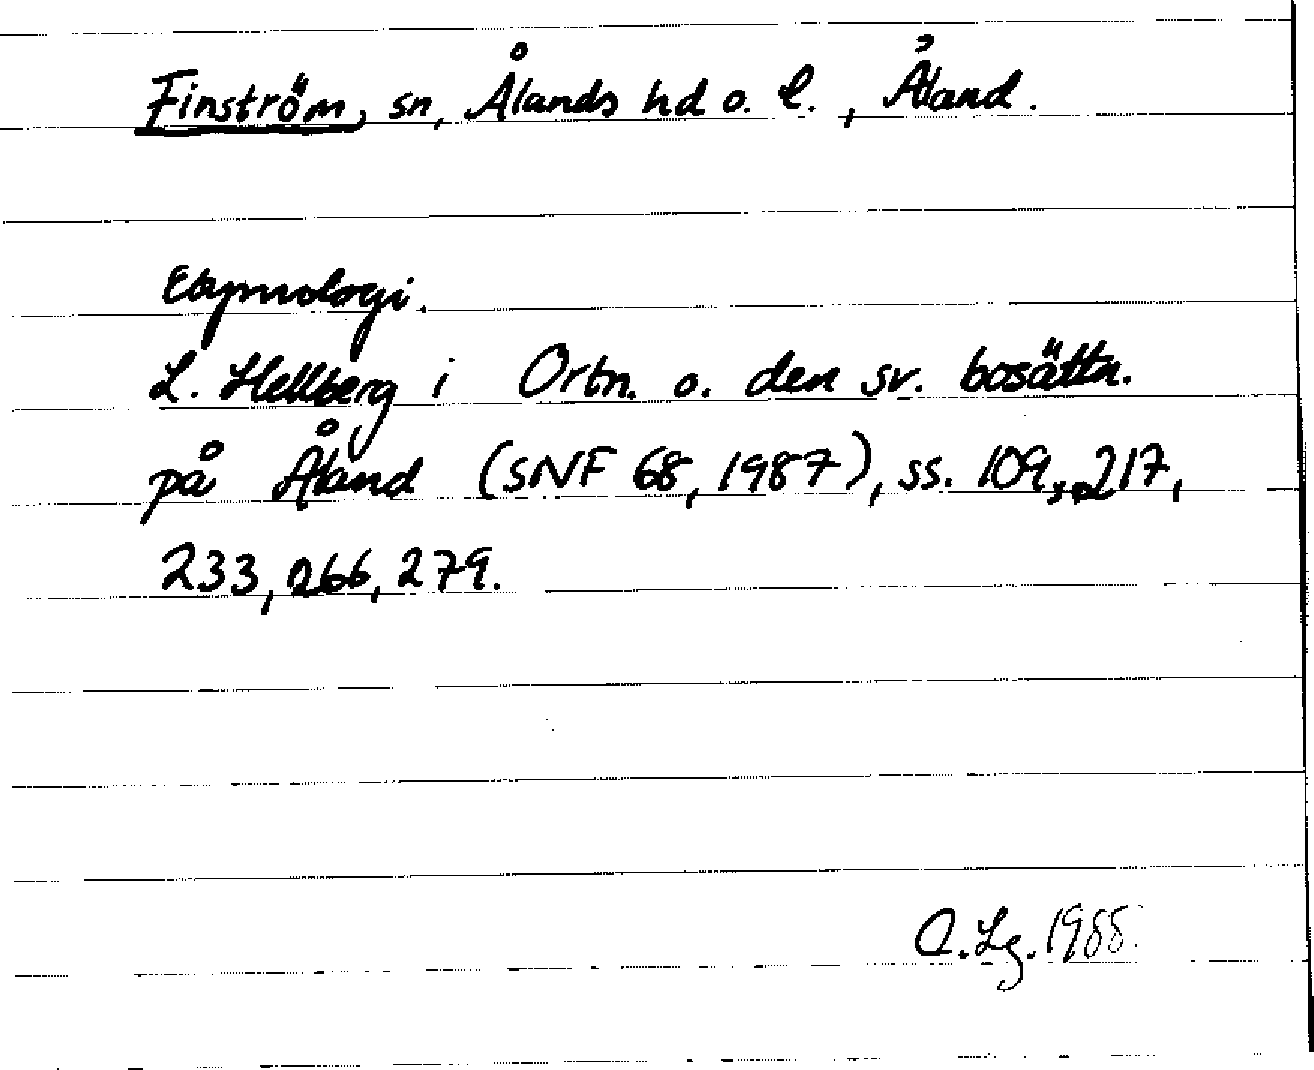 Finström, sn, Ålands hd o. l., Åland.
Etymologi.
L. Hellberg i Ortn. o. den sv. bosättn.
på Åland (SNF 68, 1987), ss. 109, 217,
233, 266, 279.
O.Lg. 1988.